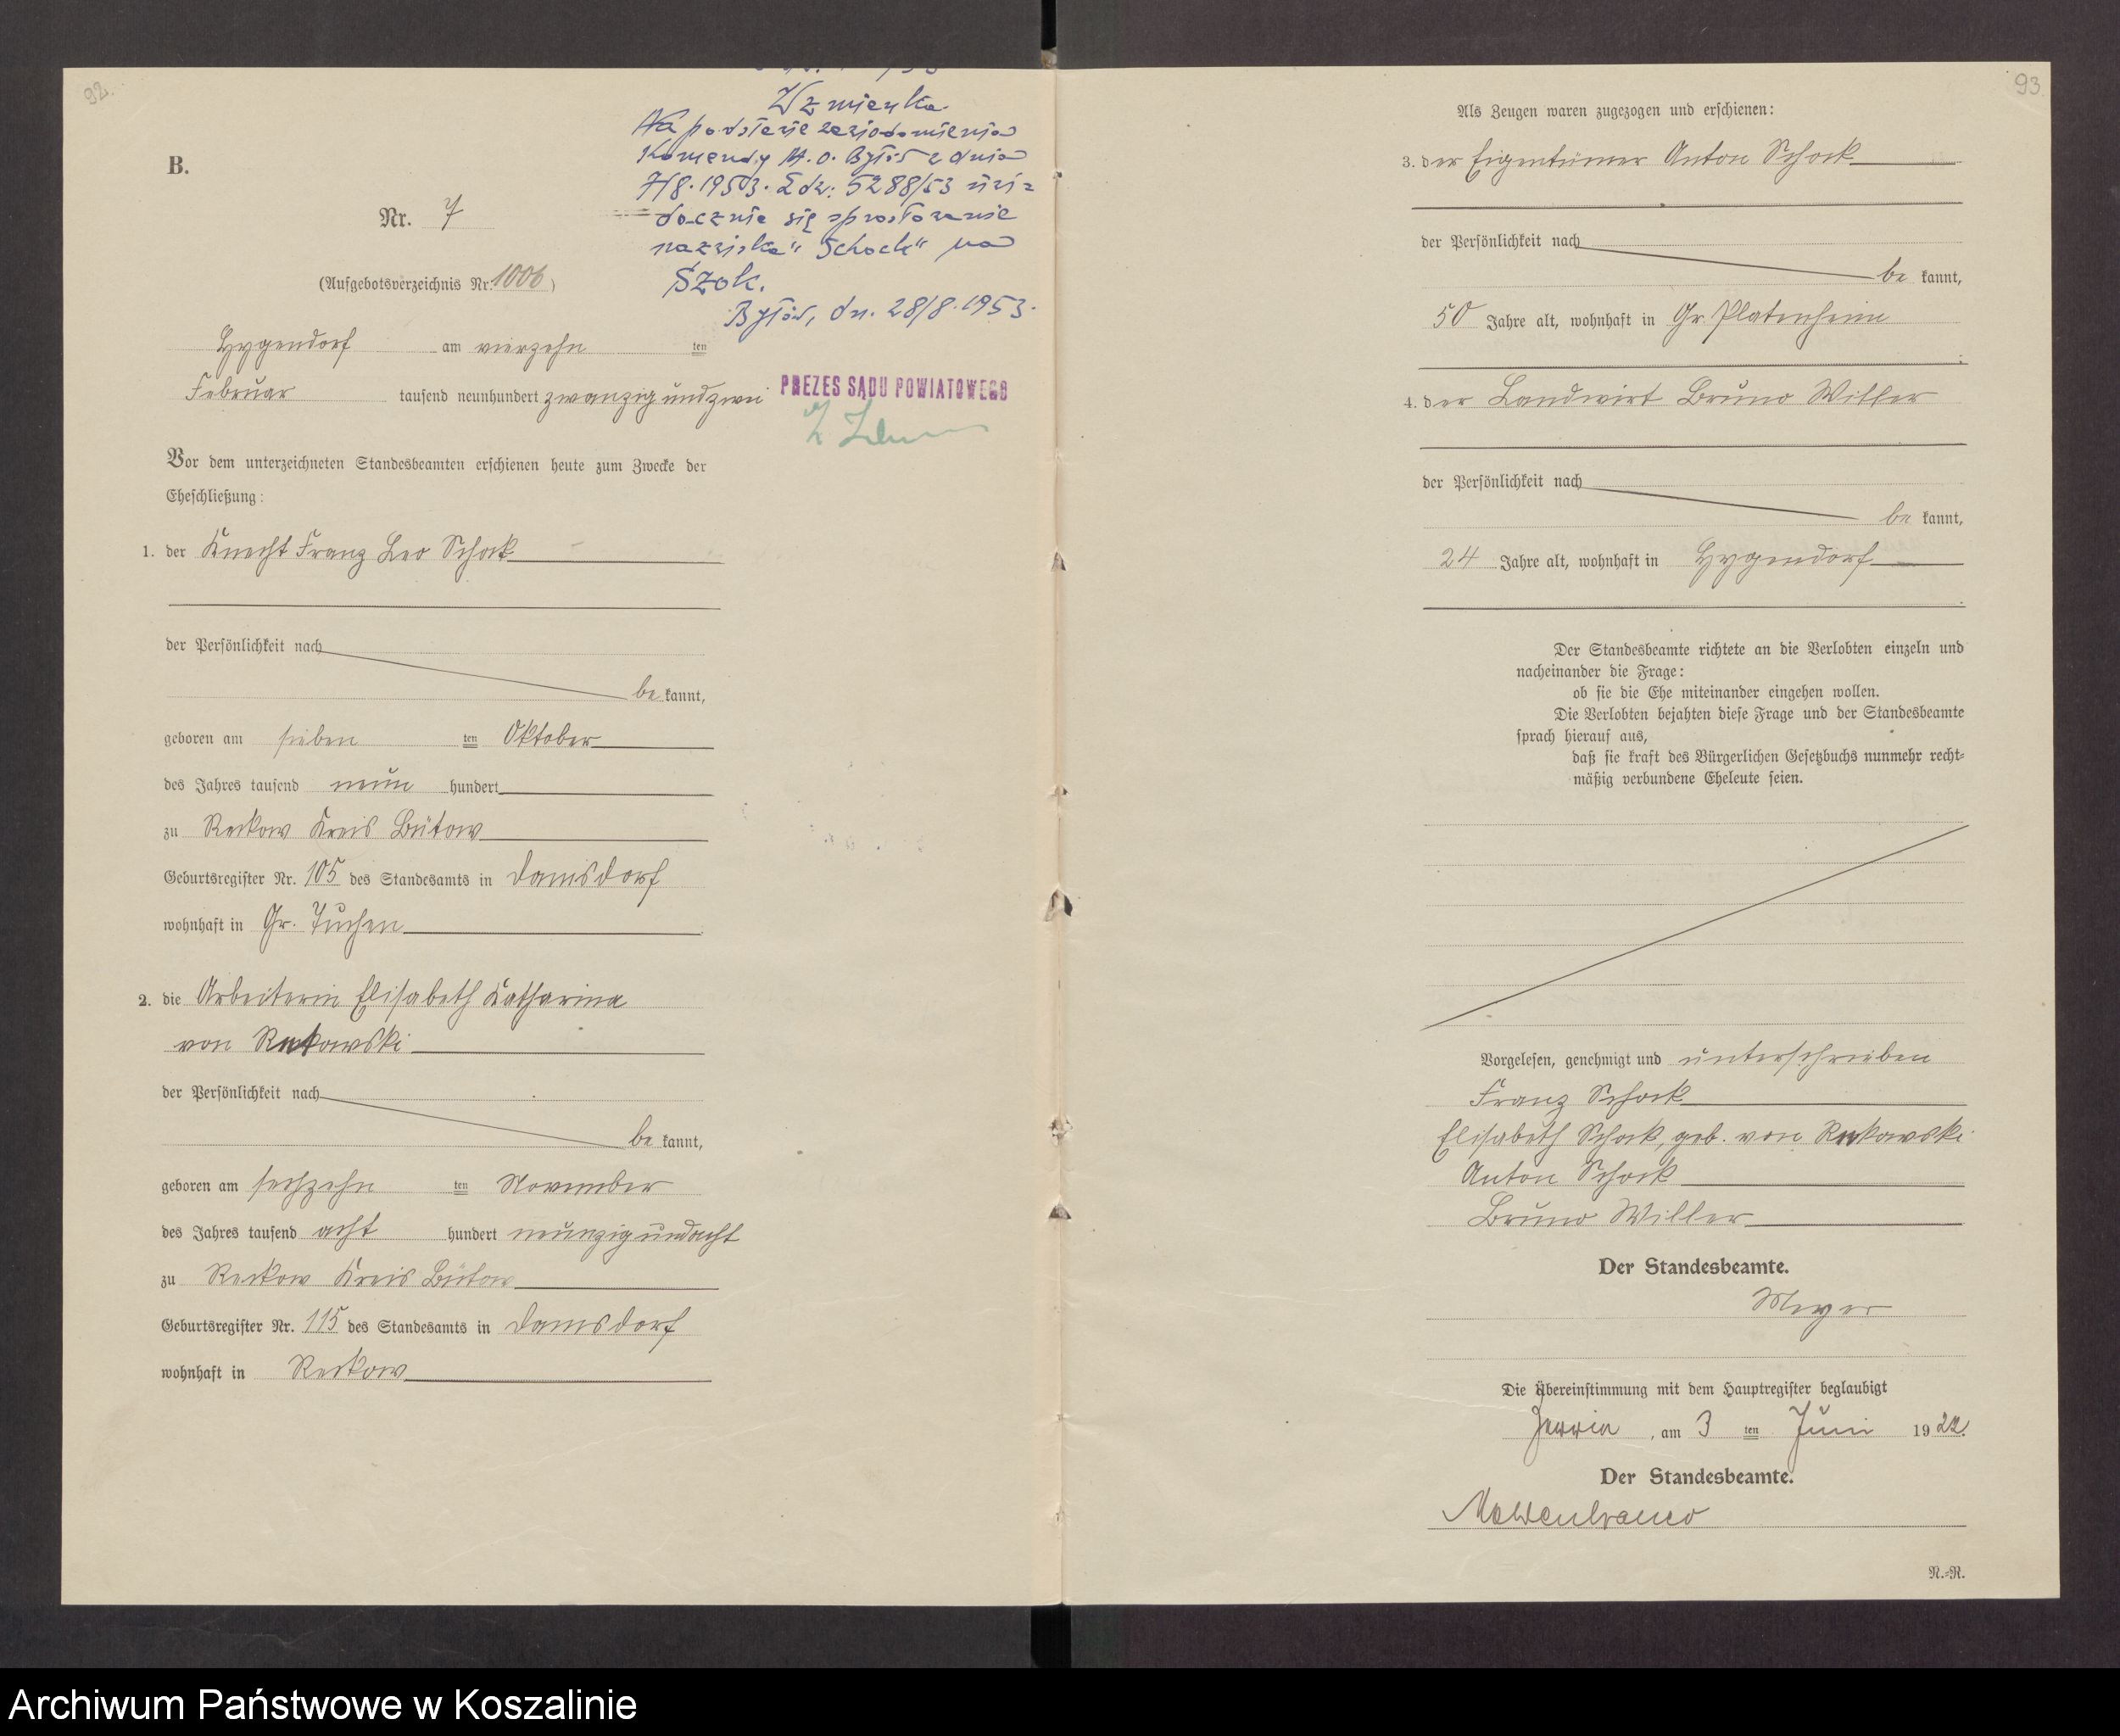 92.
B.
Nr. 7
(Aufgebotsverzeichnis Nr. 1006)
Wzmianka
Na podstawie zawiadomienia
Komendy M.O. Bytów z dnia
7/8.1953. L.dz.: 5288/53 uwi=
docznia się sprostowanie
nazwiska "Schock" na
Szok.
Bytów, dn. 28/8.1953.
PREZES SĄDU POWIATOWEGO
Hygendorf am vierzehn ten
Februar tausend neunhundert zwanzig und zwei
Vor dem unterzeichneten Standesbeamten erschienen heute zum Zwecke der
Eheschließung:
1. der Knecht Franz Leo Schock
der Persönlichkeit nach
be kannt,
geboren am sieben ten Oktober
des Jahres tausend neun hundert
zu Reckow Kreis Bütow
Geburtsregister Nr. 105 des Standesamts in Damsdorf
wohnhaft in Gr. Tuchen
2. die Arbeiterin Elisabeth Katharina
von Rekowski
der Persönlichkeit nach
be kannt,
geboren am sechzehn ten November
des Jahres tausend acht hundert neunzig und acht
zu Reckow Kreis Bütow
Geburtsregister Nr. 115 des Standesamts in Damsdorf
wohnhaft in Reckow
93
Als Zeugen waren zugezogen und erschienen:
3. der Eigentümer Anton Schock
der Persönlichkeit nach
be kannt,
50 Jahre alt, wohnhaft in Gr. Platenheim
4. der Landwirt Bruno Willer
der Persönlichkeit nach
be kannt,
24 Jahre alt, wohnhaft in Hygendorf
Der Standesbeamte richtete an die Verlobten einzeln und
nacheinander die Frage:
ob sie die Ehe miteinander eingehen wollen.
Die Verlobten bejahten diese Frage und der Standesbeamte
sprach hierauf aus,
daß sie kraft des Bürgerlichen Gesetzbuchs nunmehr recht=
mäßig verbundene Eheleute seien.
Vorgelesen, genehmigt und unterschrieben
Franz Schock
Elisabeth Schock, geb. von Rekowski.
Anton Schock
Bruno Willer
Der Standesbeamte.
Meyer
Die Übereinstimmung mit dem Hauptregister beglaubigt
, am 3 ten Juni 1922.
Der Standesbeamte.
N.=R.
Archiwum Państwowe w Koszalinie